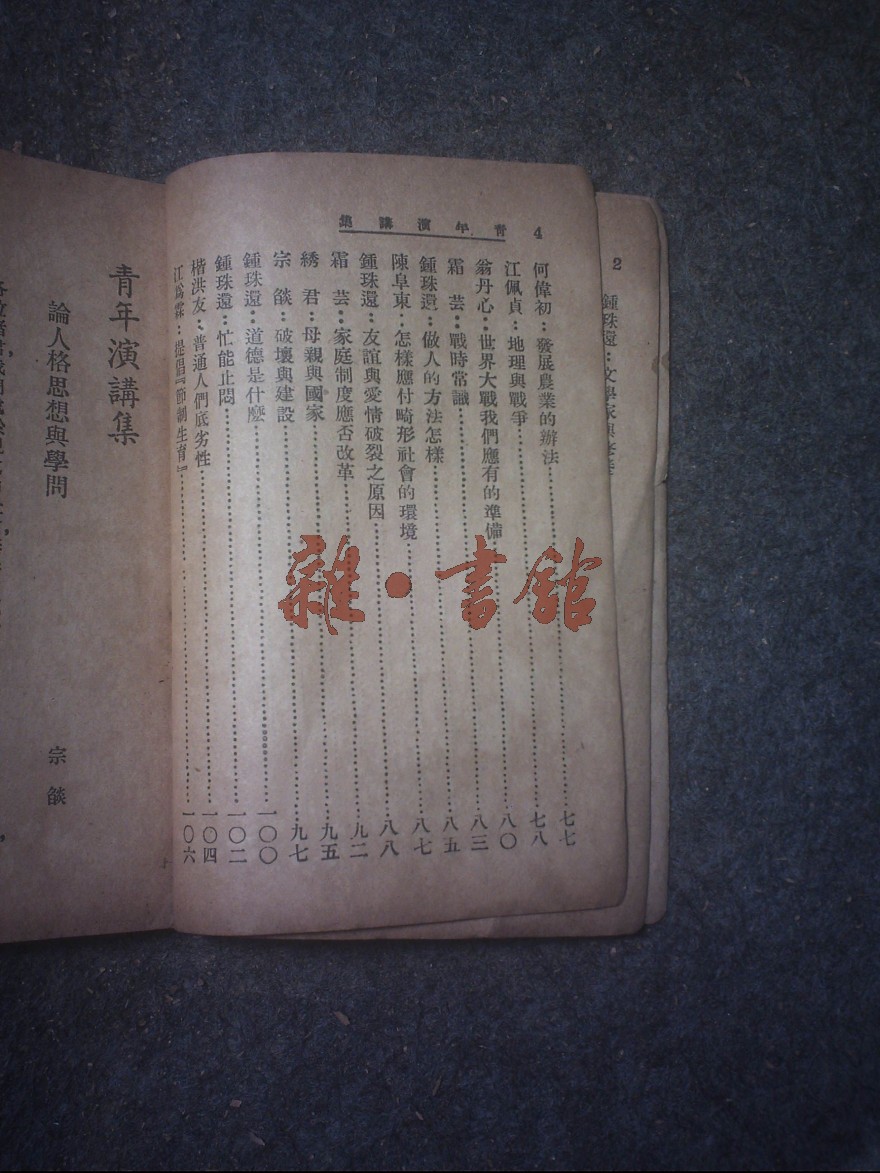 2
鍾珠還：文學家與
4 青年演講集
何偉初：發展農業的辦法……七七
江佩貞：地理與戰爭……七八
翁丹心：世界大戰我們應有的準備……八〇
霜　芸：戰時常識……八三
鍾珠還：做人的方法怎樣……八五
陳阜東：怎樣應付畸形社會的環境……八七
鍾珠還：友誼與愛情破裂之原因……八八
霜　芸：家庭制度應否改革……九二
綉　君：母親與國家……九五
宗　燄：破壞與建設……九七
鍾珠還：道德是什麼……一〇〇
鍾珠還：忙能止悶……一〇二
楷洪友：普通人們底劣性……一〇四
江為霖：提倡『節制生育』……一〇六
青年演講集
論人格思想與學問
宗　燄
雜·書館